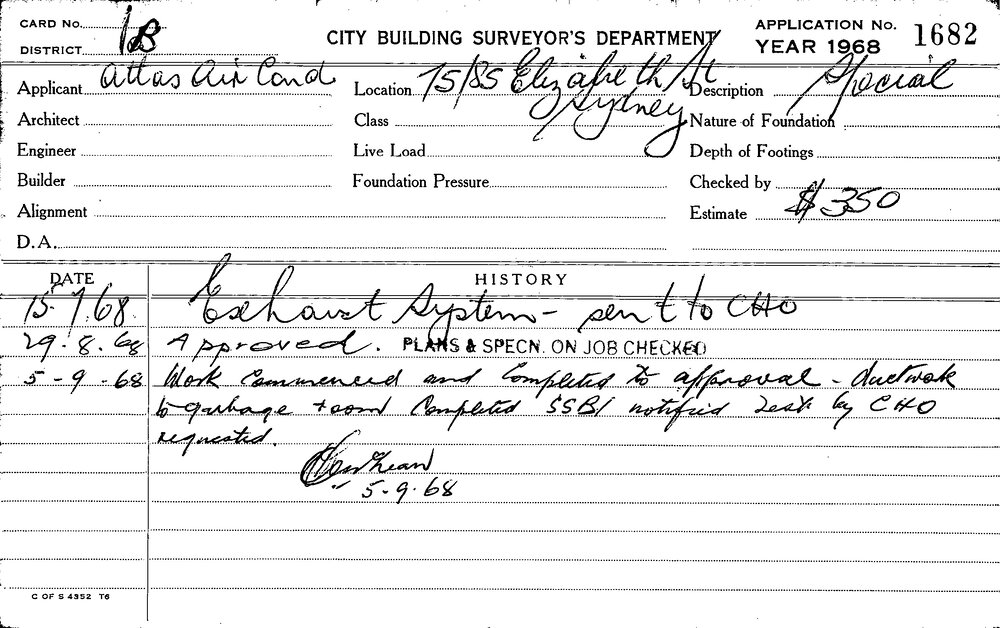 CARD No.
DISTRICT 1B
CITY BUILDING SURVEYOR'S DEPARTMENT
APPLICATION No. 1682
YEAR 1968
Applicant Atlas Air Cond
Location 75/85 Elizabeth St
Sydney
Description Special
Architect
Class
Nature of Foundation
Engineer
Live Load
Depth of Footings
Builder
Foundation Pressure
Checked by
Alignment
Estimate $350
D.A.
DATE HISTORY
15.7.68. Exhaust System - sent to CHO
29.8.68 Approved. PLANS & SPECN. ON JOB CHECKED
5-9-68 Work Commenced and Completed to approval - ductwork
to garbage room Completed SSB/ notified Test by CHO
requested.
5-9.68
C OF S 4352 T6